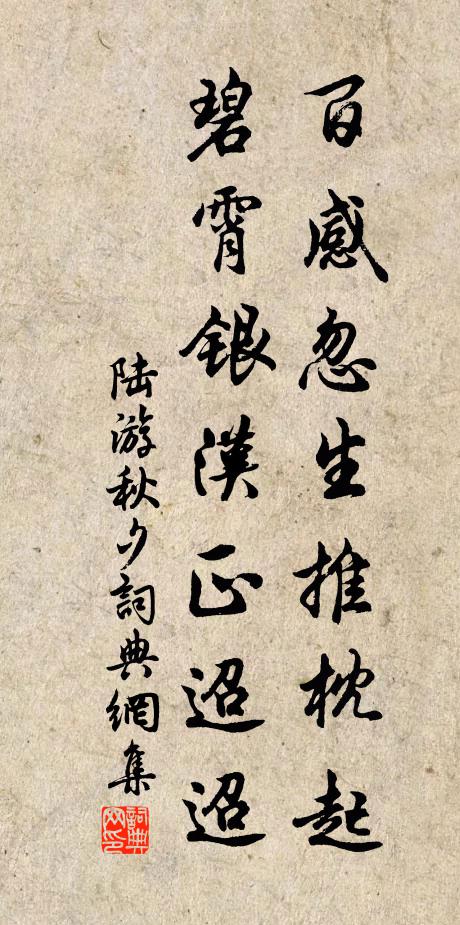 百感忽生推枕起
碧霄銀漢正迢迢
陆游秋夕詞典網集
詞典網印